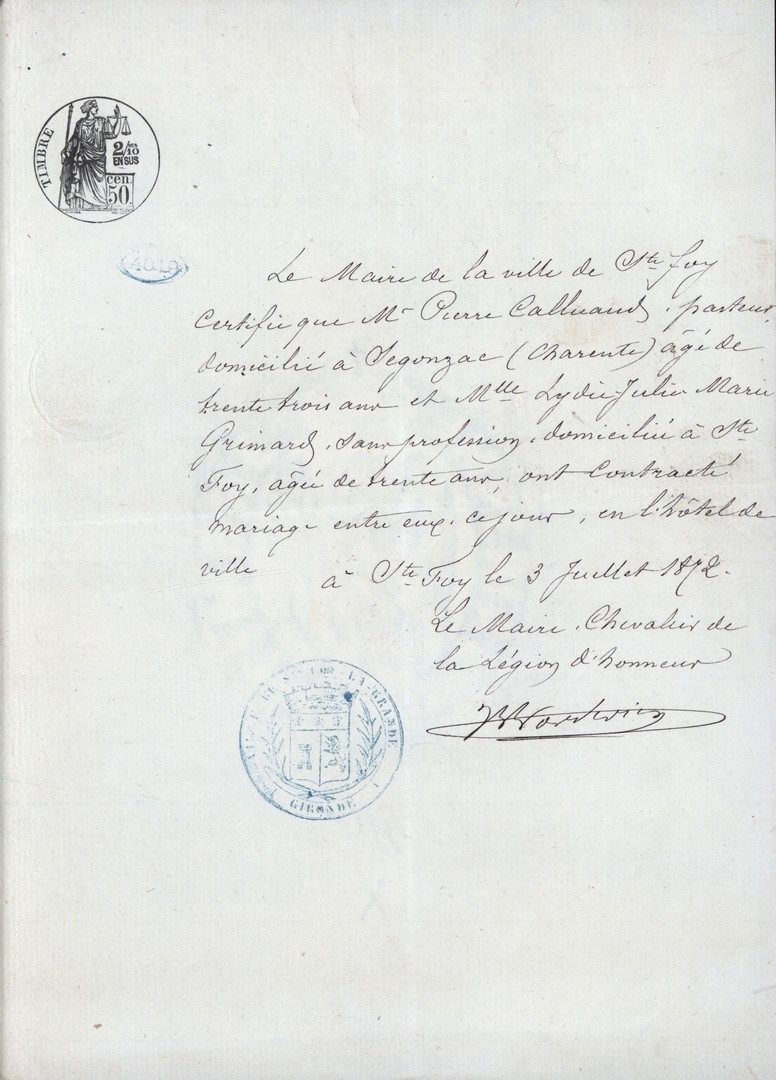 TIMBRE
2/10
EN SUS
cen.
50.
4010
Le Maire de la ville de Ste foy
certifie que Mr Pierre Calluaud, pasteur,
domicilié à Segonzac (Charente) âgé de
trente trois ans et Mlle Lydie Julie Marie
Grimard, sans profession, domiciliée à Ste
Foy, âgée de trente ans, ont contracté
mariage entre eux, ce jour, en l'hôtel de
ville
à Ste Foy le 3 Juillet 1872.
Le Maire, Chevalier de
la Légion d'honneur
LA-GRANDE
GIRONDE